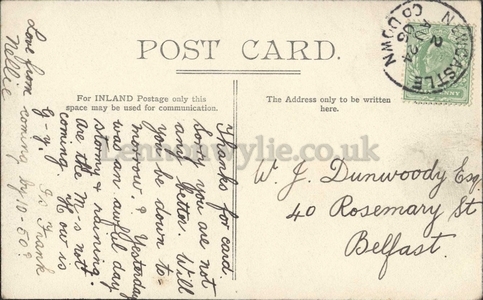 POST CARD.
For INLAND Postage only this
space may be used for communication.
The Address only to be written
here.
NEWCASTLE
CO DOWN
2
AU 24
05
Thanks for card.
Sorry you are not
any better. Will
you be down to-
morrow? Yesterday
was an awful day
stormy & raining.
Are the M's not
coming. How is
G-y. Is Frank
coming by 10-50?
Love from
Nellie
W. J. Dunwoody Esq.
40 Rosemary St
Belfast.
Lennonwylie.co.uk